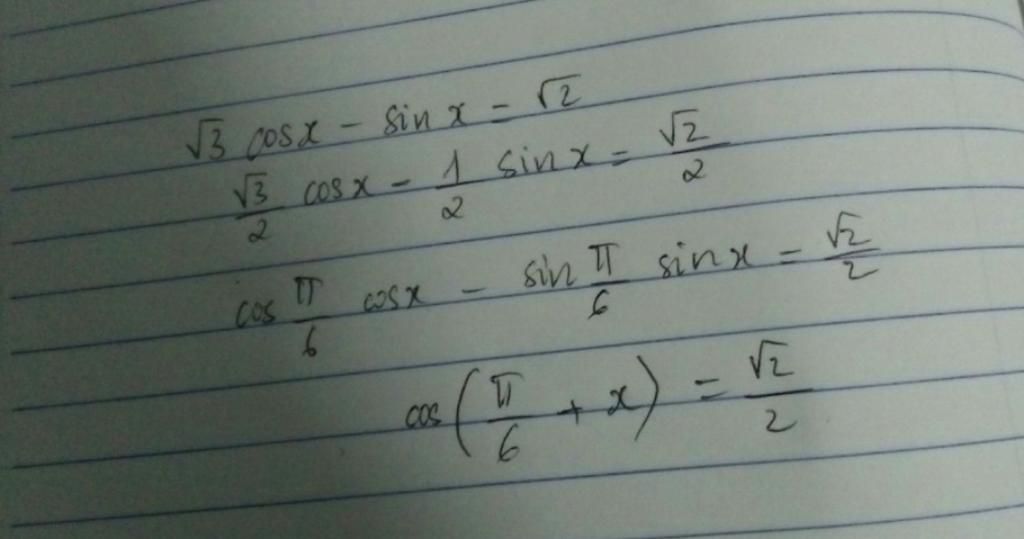 √3 cosx - sin x = √2
√3/2 cosx - 1/2 sinx = √2/2
cos π/6 cosx - sin π/6 sinx = √2/2
cos(π/6 + x) = √2/2